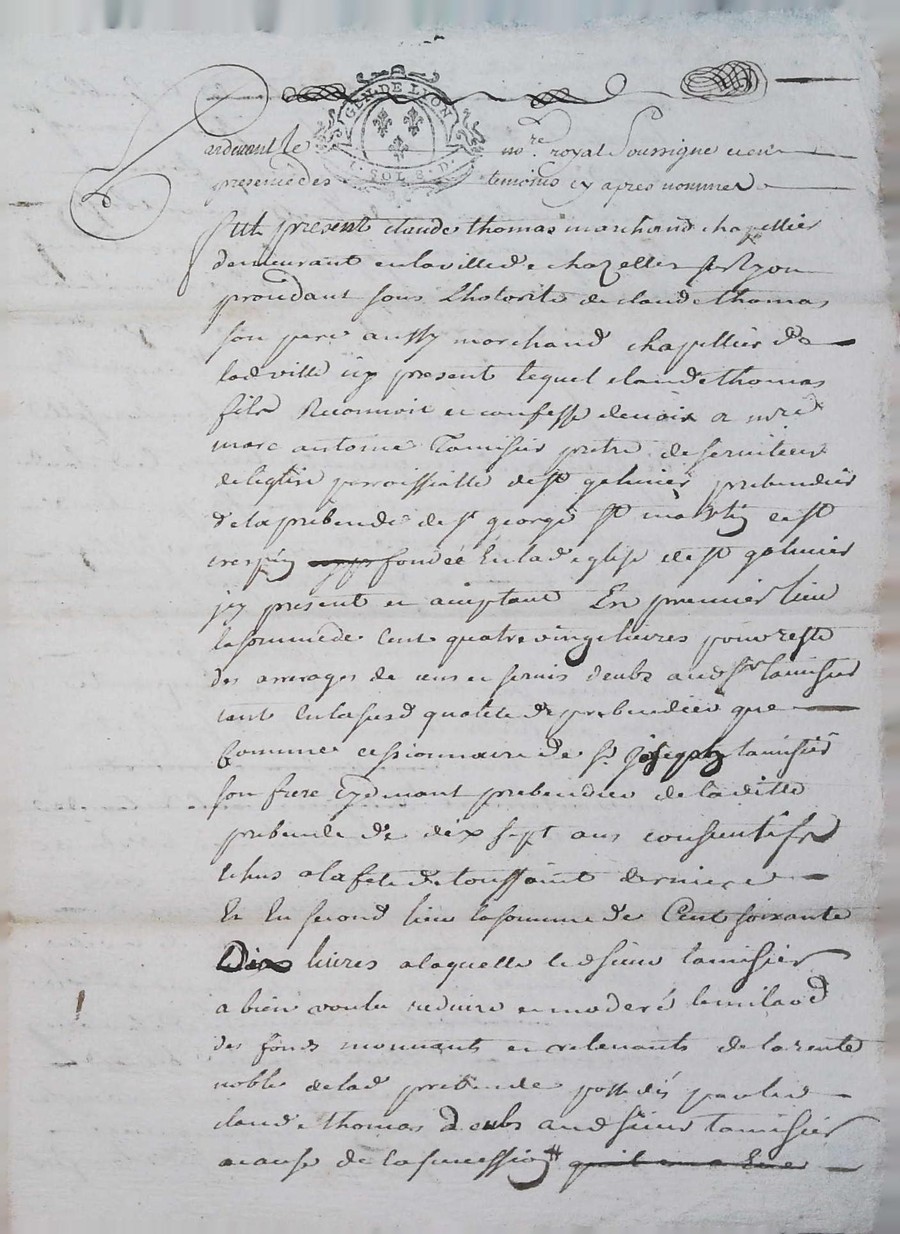 GEN. DE LYON
1. SOL 8. D.
Pardevant le no.re royal Soussigné et en
presence des temoins cy apres nommes
fut present claude thomas marchand chapellier
demeurant en la ville de chazelles sur Lyon
procedant sous Lhotorité de claude thomas
son pere aussy marchand chapellier de
lad ville icy present lequel claude thomas
fils Reconnoit et confesse devoir a m.re
marc antoine Tamisier pretre desserviteur
de leglise parroissialle de st galmier prebendier
de la prebende de st george st martin et st
crespin fondée En lad eglise de st galmier
icy present et acceptant En premier lieu
la somme de Cent quatre vingt livres pour reste
des arrerages de cens et servis deubs aud sr tamisier
tant En la susd qualité de prebendier que
Comme cessionnaire de sr joseph tamisier
son frere Cydevant prebendier de la ditte
prebende de dix sept ans consecutifs
Echus a la fete de toussaint derniere
Et En second lieu la somme de Cent soixante
Dix livres a laquelle led sieur tamisier
a bien voulu reduire et moderé le milaod
des fonds mouvants et relevants de la rente
noble de lad prebende possedés par led
claude thomas deubs aud sieur tamisier
a cause de la succession qu'il en a Eue